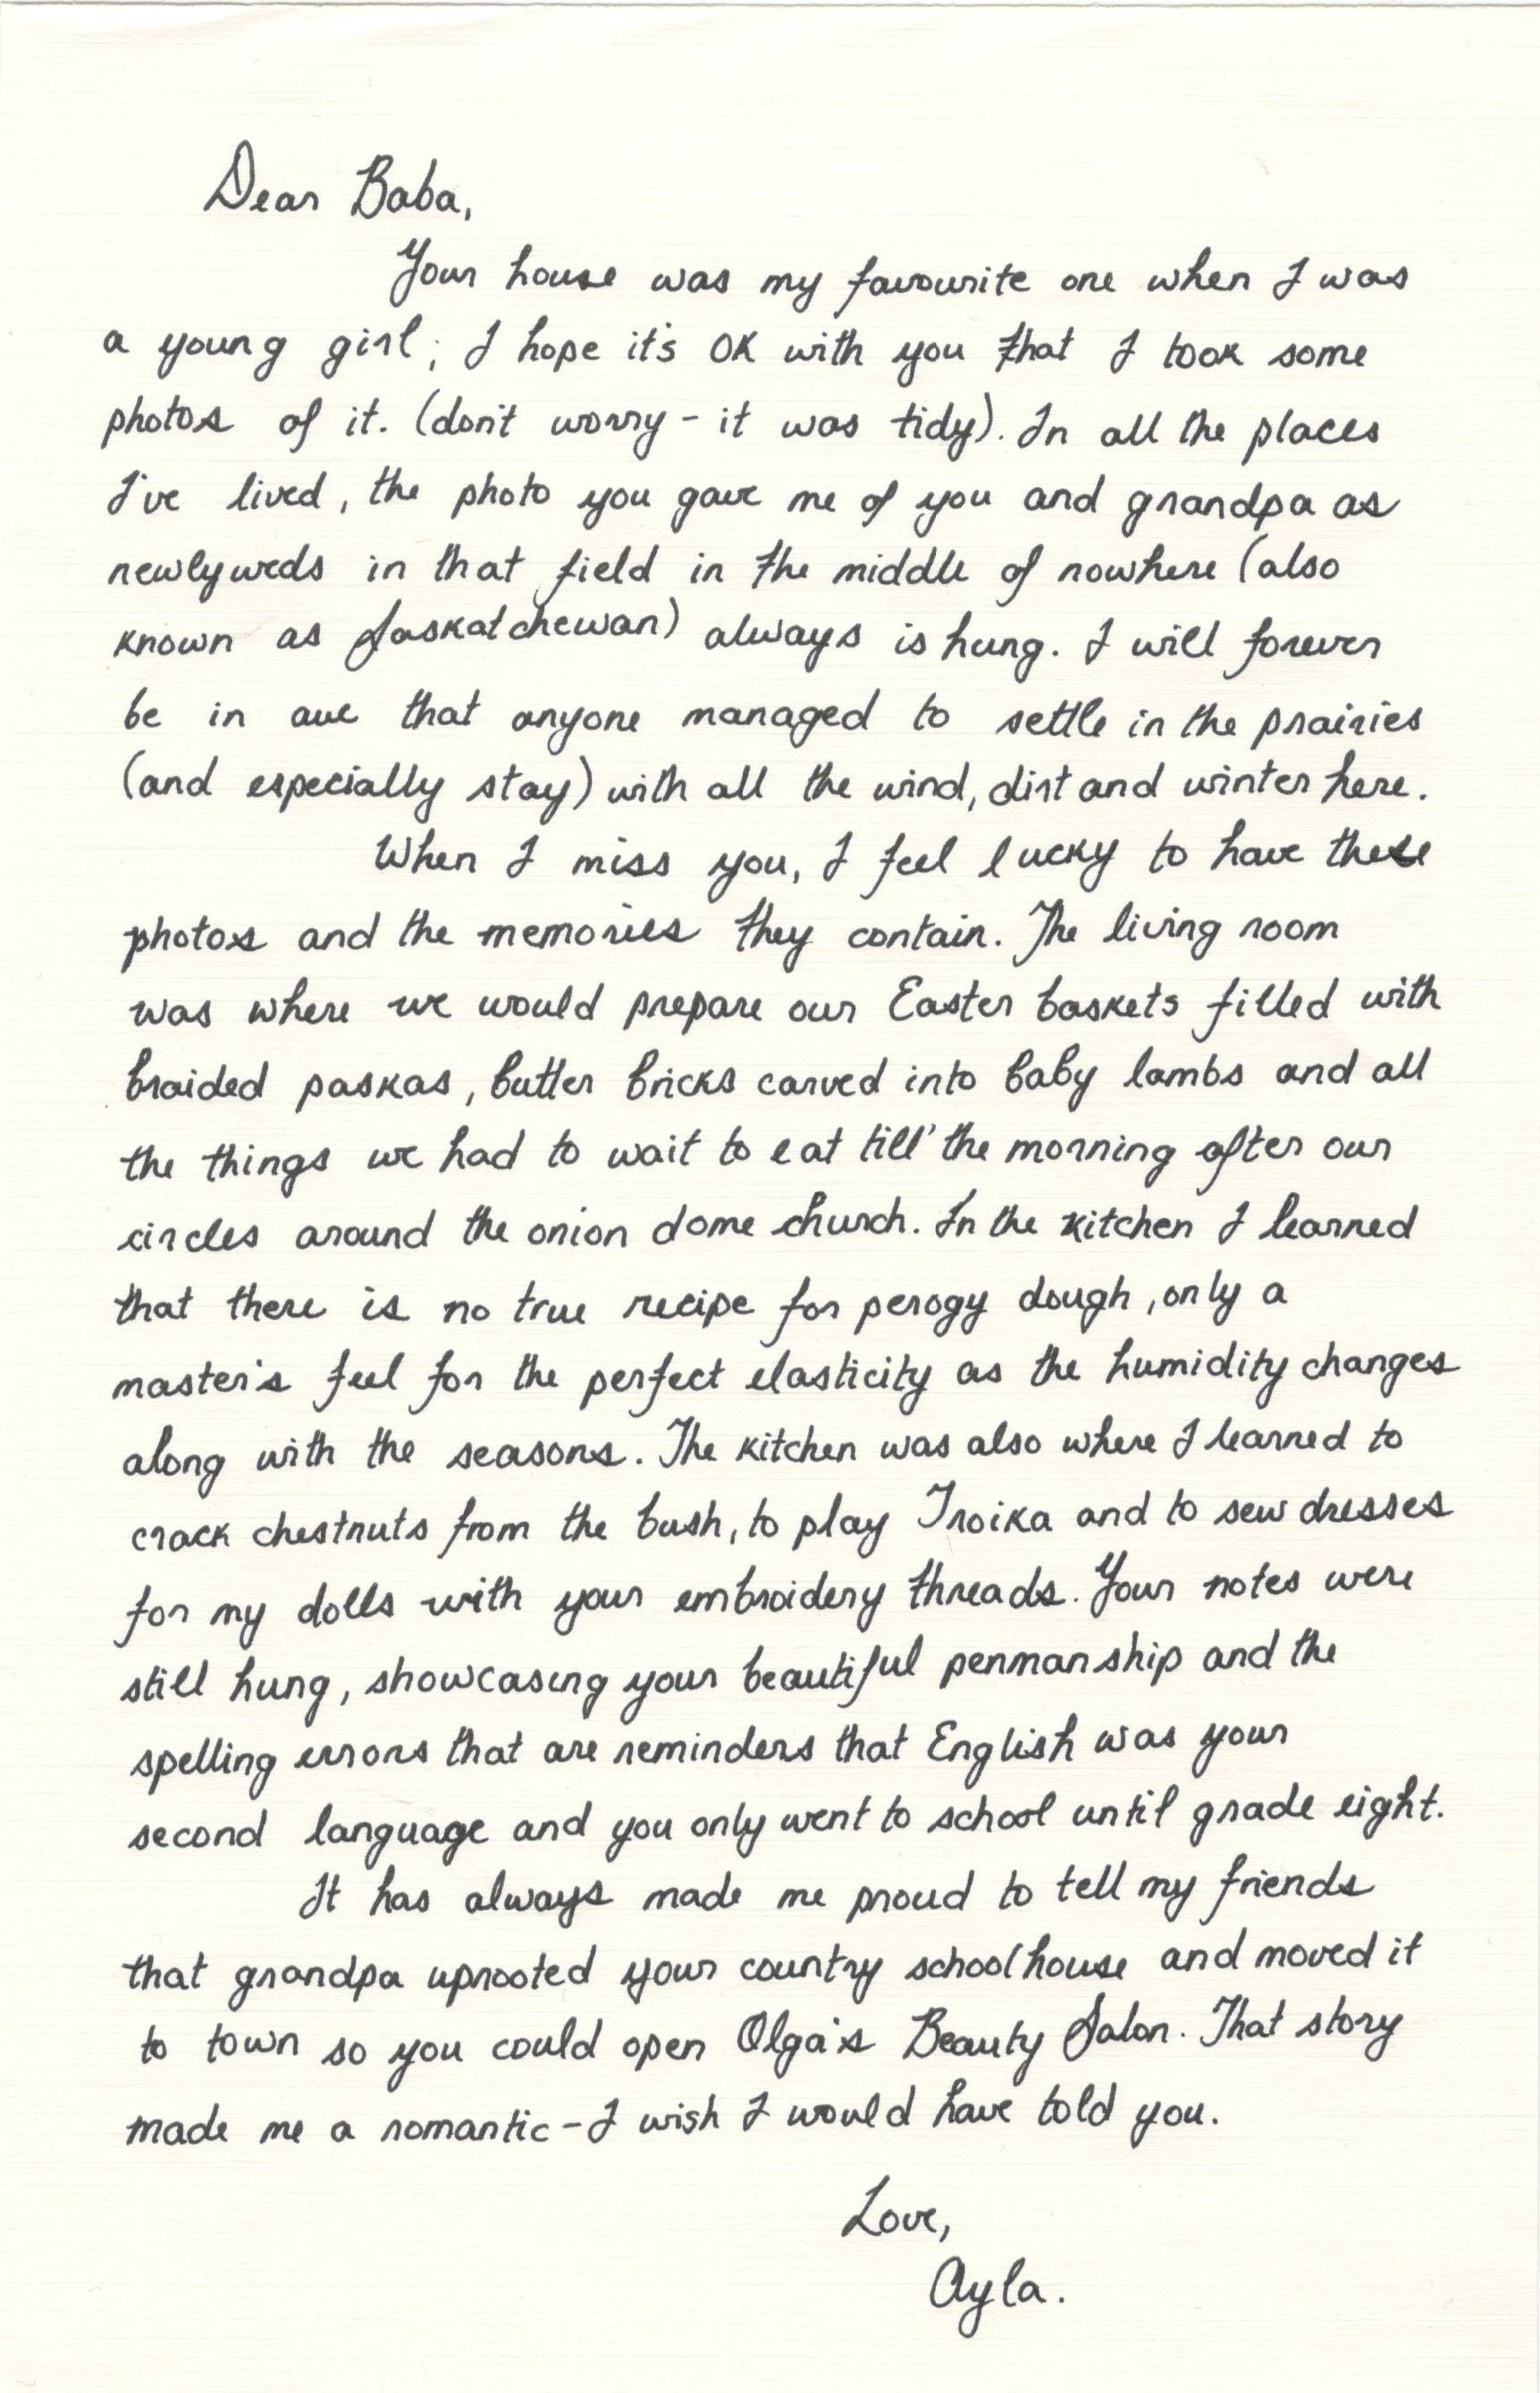 Dear Baba,
Your house was my favourite one when I was
a young girl; I hope it's OK with you that I took some
photos of it. (don't worry - it was tidy). In all the places
I've lived, the photo you gave me of you and grandpa as
newlyweds in that field in the middle of nowhere (also
known as Saskatchewan) always is hung. I will forever
be in awe that anyone managed to settle in the prairies
(and especially stay) with all the wind, dirt and winter here.
When I miss you, I feel lucky to have these
photos and the memories they contain. The living room
was where we would prepare our Easter baskets filled with
braided paskas, butter bricks carved into baby lambs and all
the things we had to wait to eat till' the morning after our
circles around the onion dome church. In the kitchen I learned
that there is no true recipe for perogy dough, only a
master's feel for the perfect elasticity as the humidity changes
along with the seasons. The kitchen was also where I learned to
crack chestnuts from the bush, to play Troika and to sew dresses
for my dolls with your embroidery threads. Your notes were
still hung, showcasing your beautiful penmanship and the
spelling errors that are reminders that English was your
second language and you only went to school until grade eight.
It has always made me proud to tell my friends
that grandpa uprooted your country schoolhouse and moved it
to town so you could open Olga's Beauty Salon. That story
made me a romantic - I wish I would have told you.
Love,
Ayla.